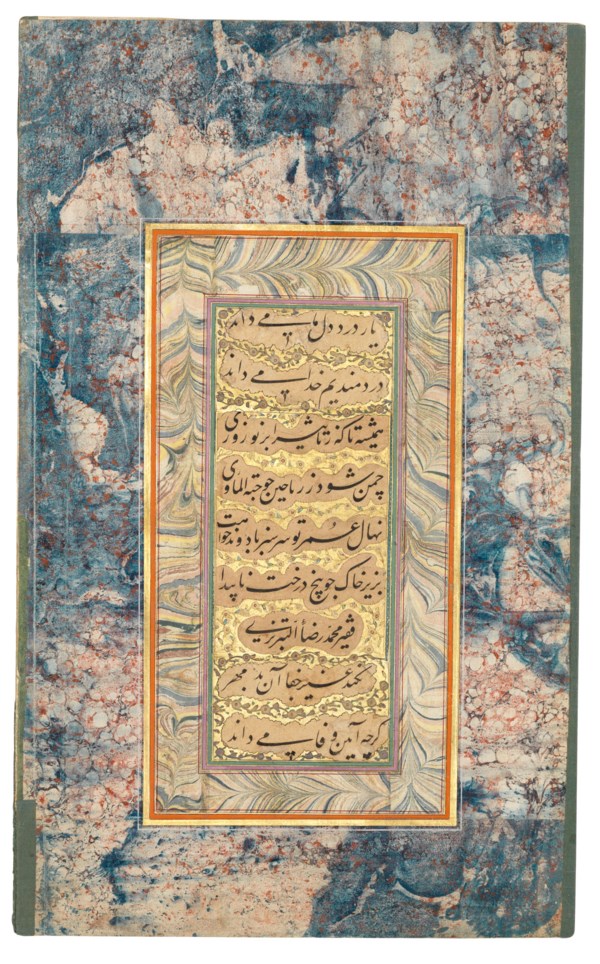 یار درد دل ما می داند
دردمندیم خدا می داند
همیشه تا که ز تاثیر ابر نوروزی
چمن شود ز ریاحین چو جنة الماوی
نهال عمر تو سرسبز باد و بدخواهت
بزیر خاک چو بیخ درخت ناپیدا
فقیر محمد رضاء التبریزی
نکند غیر جفا آن بد مهر
کرچه آیین وفا می داند